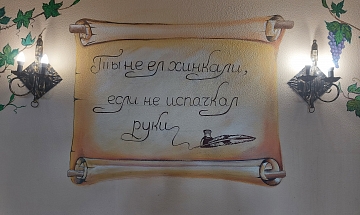 Ты не ел хинкали,
если не испачкал
руки